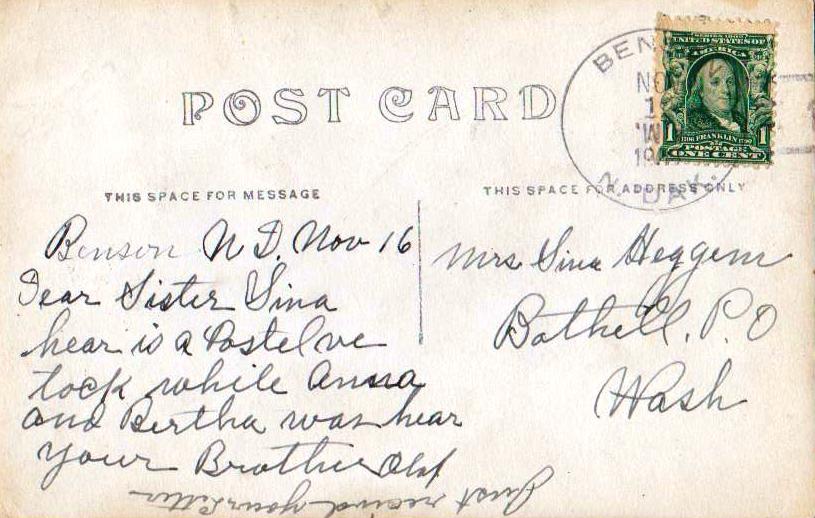 POST CARD
THIS SPACE FOR MESSAGE
THIS SPACE FOR ADDRESS ONLY
BEN
NO
1
N. DAK.
SERIES 1902
UNITED STATES OF
AMERICA
1 FRANKLIN 1
POSTAGE
ONE CENT
Benson N D. Nov 16
Dear Sister Sina
hear is a Postel we
tock while Anna
and Bertha was hear
your Brother Olaf
Just receved your Letter
Mrs Sina Heggem
Bothell, P. O
Wash